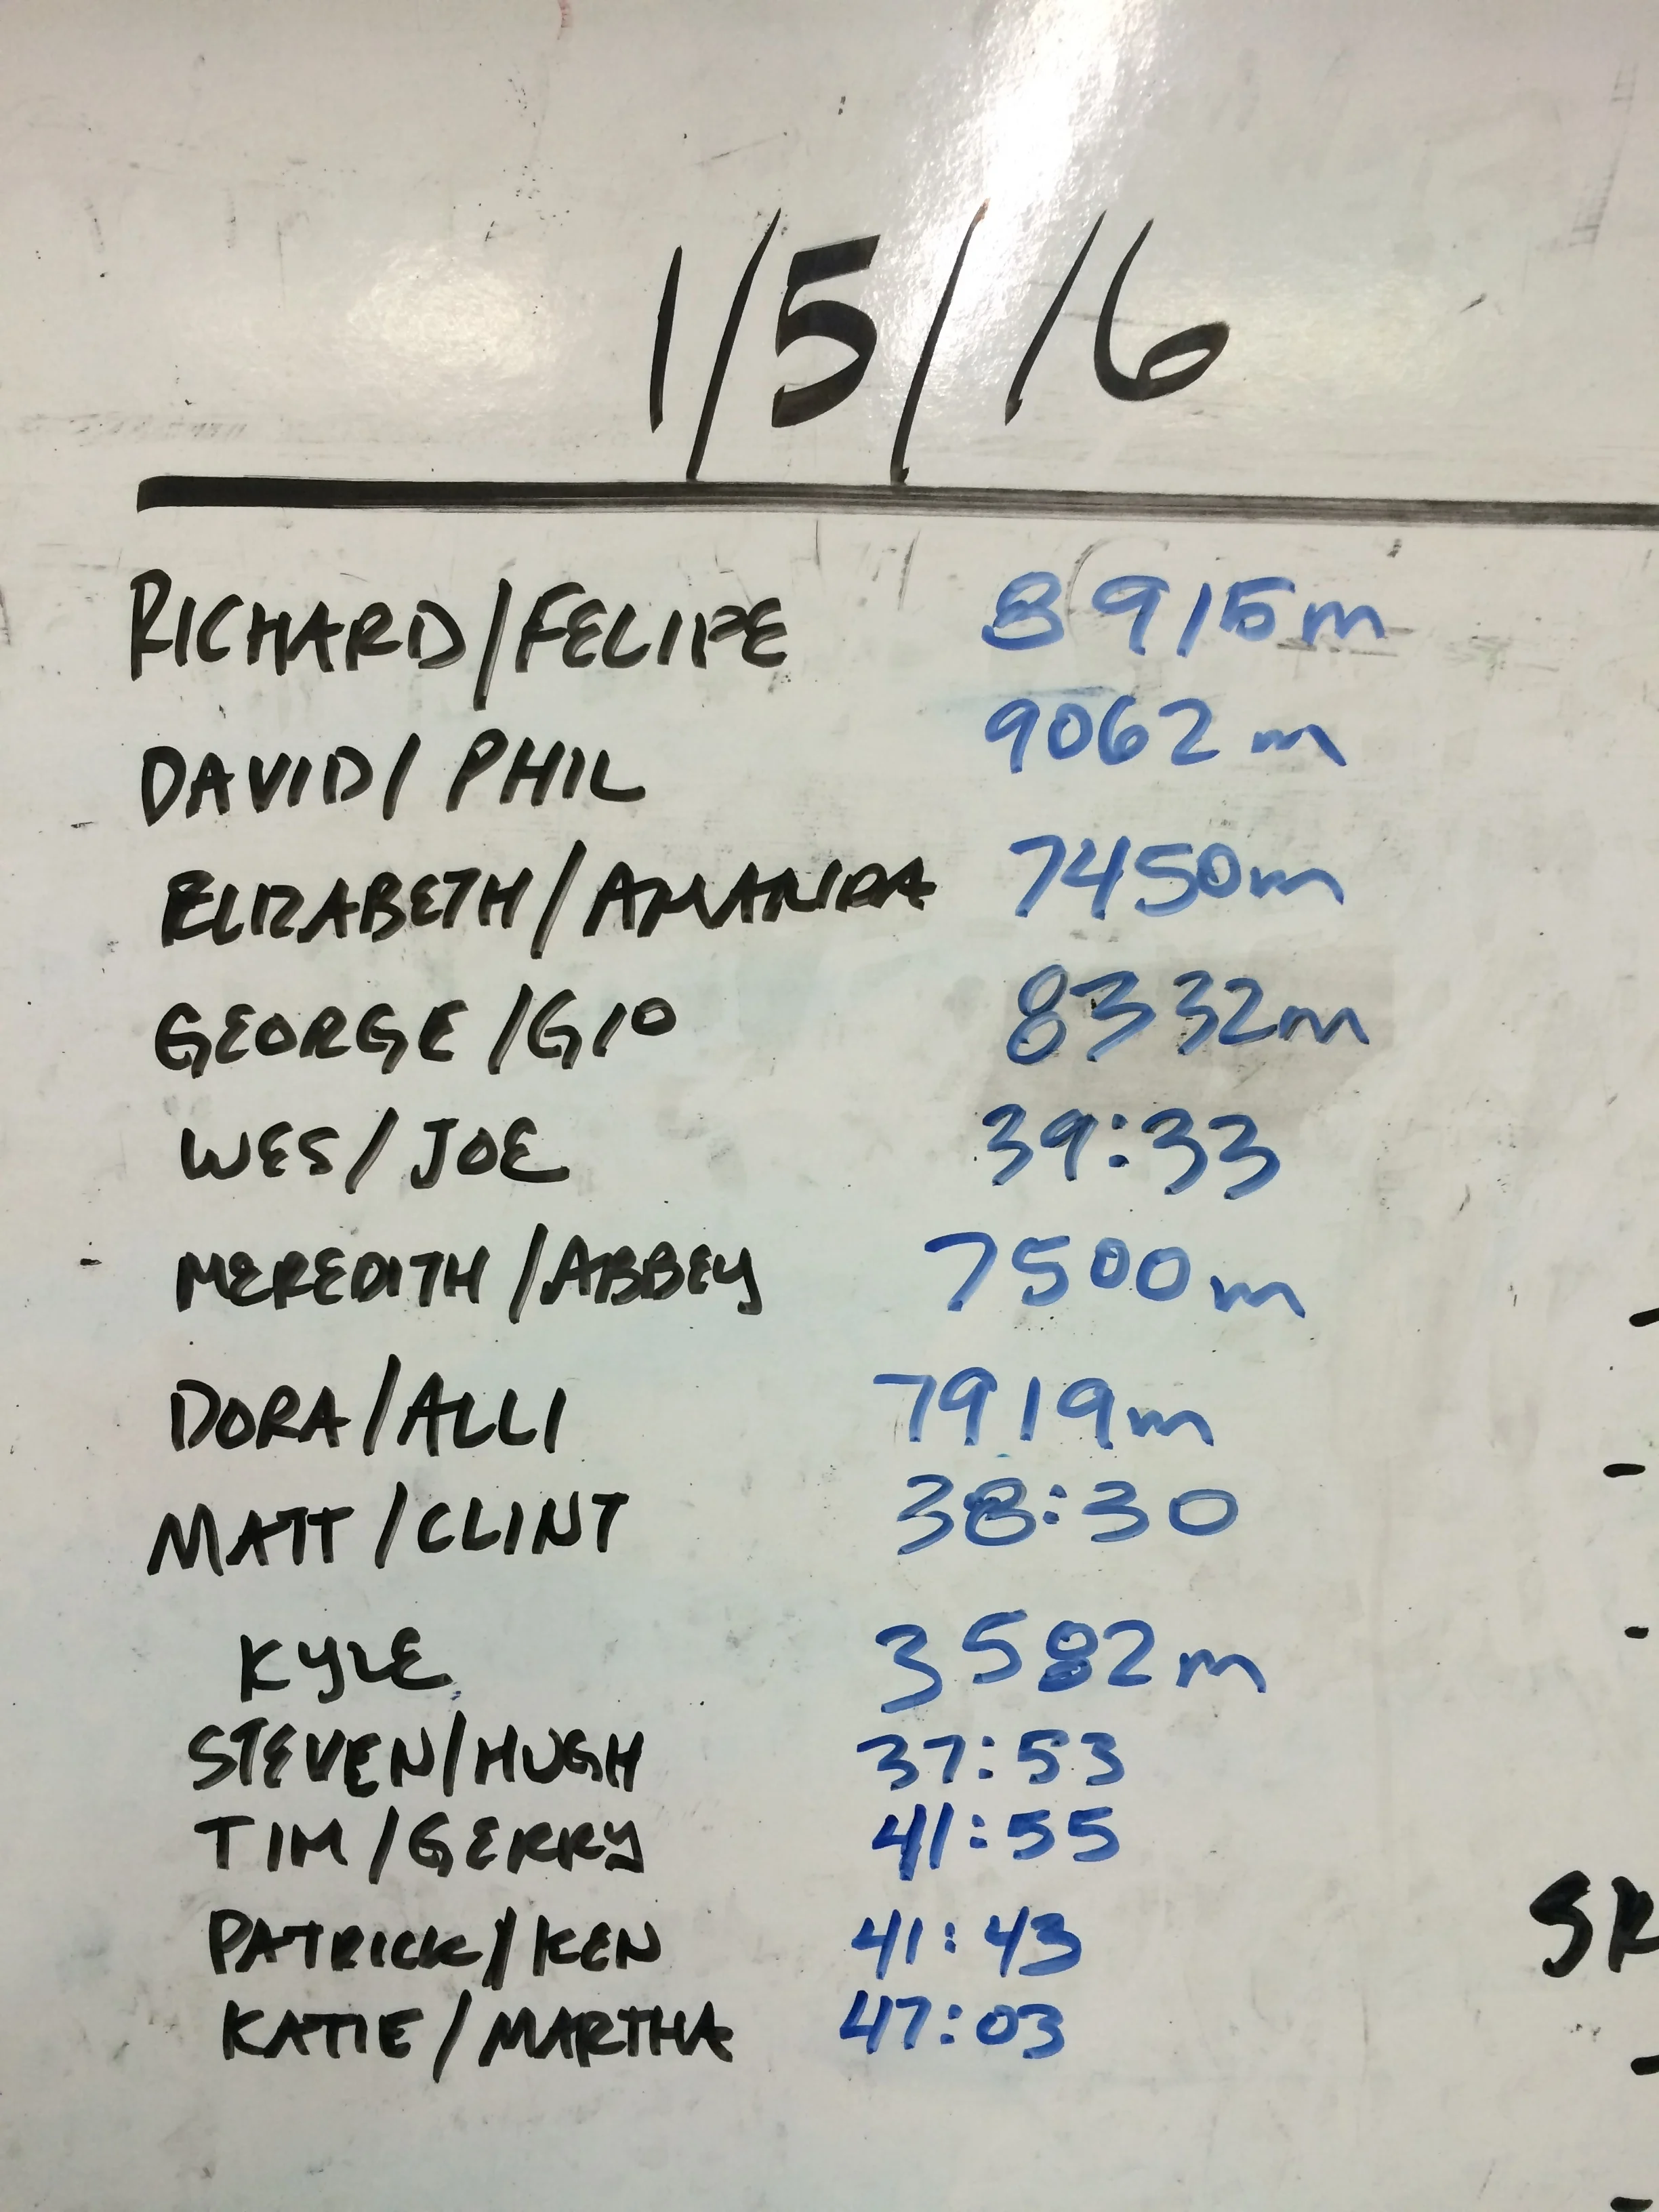 1/5/16
RICHARD/FELIPE 8915m
DAVID/ PHIL 9062m
ELIZABETH/AMANDA 7450m
GEORGE/GIO 8332m
WES/JOE 39:33
MEREDITH/ABBEY 7500m
DORA/ALLI 7919m
MATT/CLINT 38:30
KYLE 3582m
STEVEN/HUGH 37:53
TIM/GERRY 41:55
PATRICK/KEN 41:43
KATIE/MARTHA 47:03